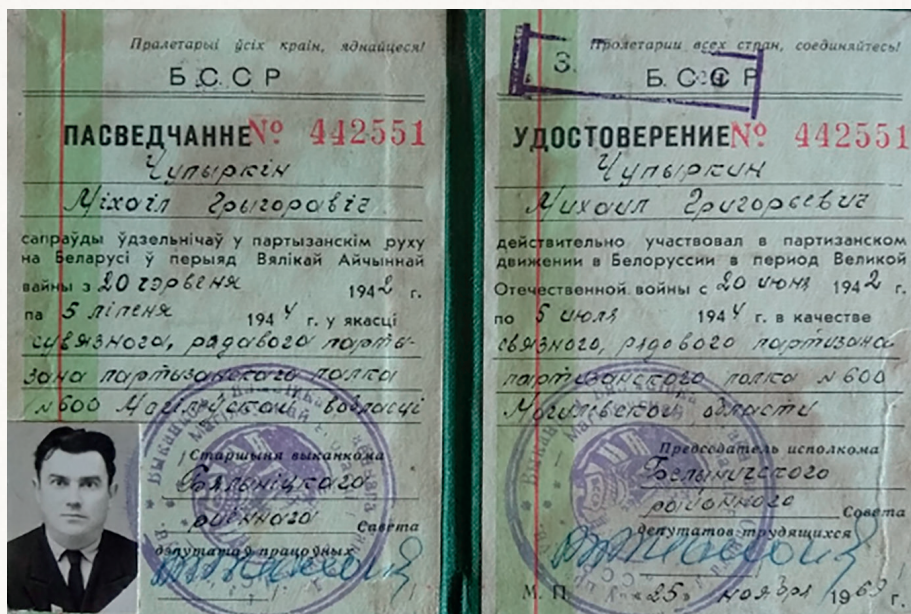 Пралетарыі ўсіх краін, яднайцеся!
БССР
ПАСВЕДЧАННЕ № 442551
Чупыркін
Міхаіл Грыгоравіч
сапраўды ўдзельнічаў у партызанскім руху
на Беларусі ў перыяд Вялікай Айчыннай
вайны з 20 чэрвеня 1942 г.
па 5 ліпеня 1944 г. у якасці
сувязного, радавога парты-
зана партызанского полка
№600 Магілёўской вобласці
Старшыня выканкома
Бялыніцкага
раённаго Савета
дэпутатаў працоўных
Пролетарии всех стран, соединяйтесь!
З.
БССР
УДОСТОВЕРЕНИЕ № 442551
Чупыркин
Михаил Григорьевич
действительно участвовал в партизанском
движении в Белоруссии в период Великой
Отечественной войны с 20 июня 1942 г.
по 5 июля 1944 г. в качестве
связного, рядового партизана
партизанского полка №600
Могилевской области
Председатель исполкома
Белыничского
районного Совета
депутатов трудящихся
М. П. "25" ноября 1969 г.